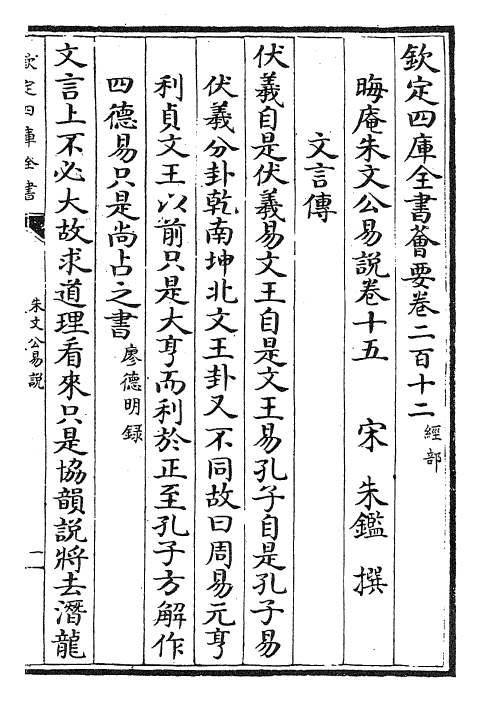 欽定四庫全書薈要卷二百十二 經部
晦庵朱文公易說卷十五 宋 朱鑑 撰
文言傳
伏羲自是伏羲易文王自是文王易孔子自是孔子易
伏羲分卦乾南坤北文王卦又不同故曰周易元亨
利貞文王以前只是大亨而利於正至孔子方解作
四德易只是尚占之書 廖德明錄
文言上不必大故求道理看來只是協韻說將去潛龍
欽定四庫全書
朱文公易說
一